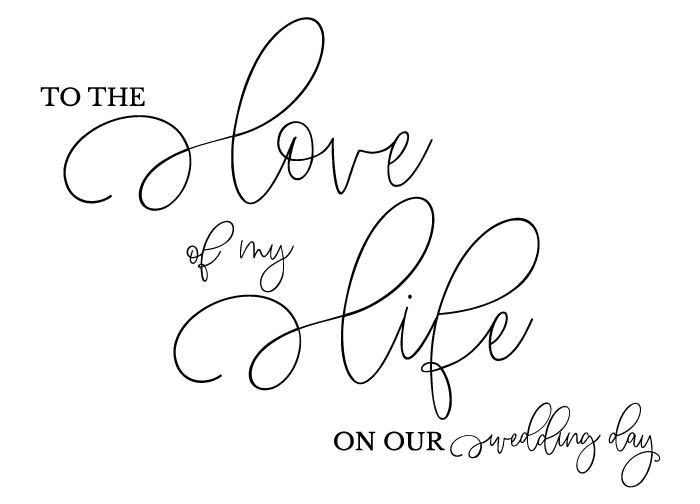 TO THE
love
of my
life
ON OUR wedding day